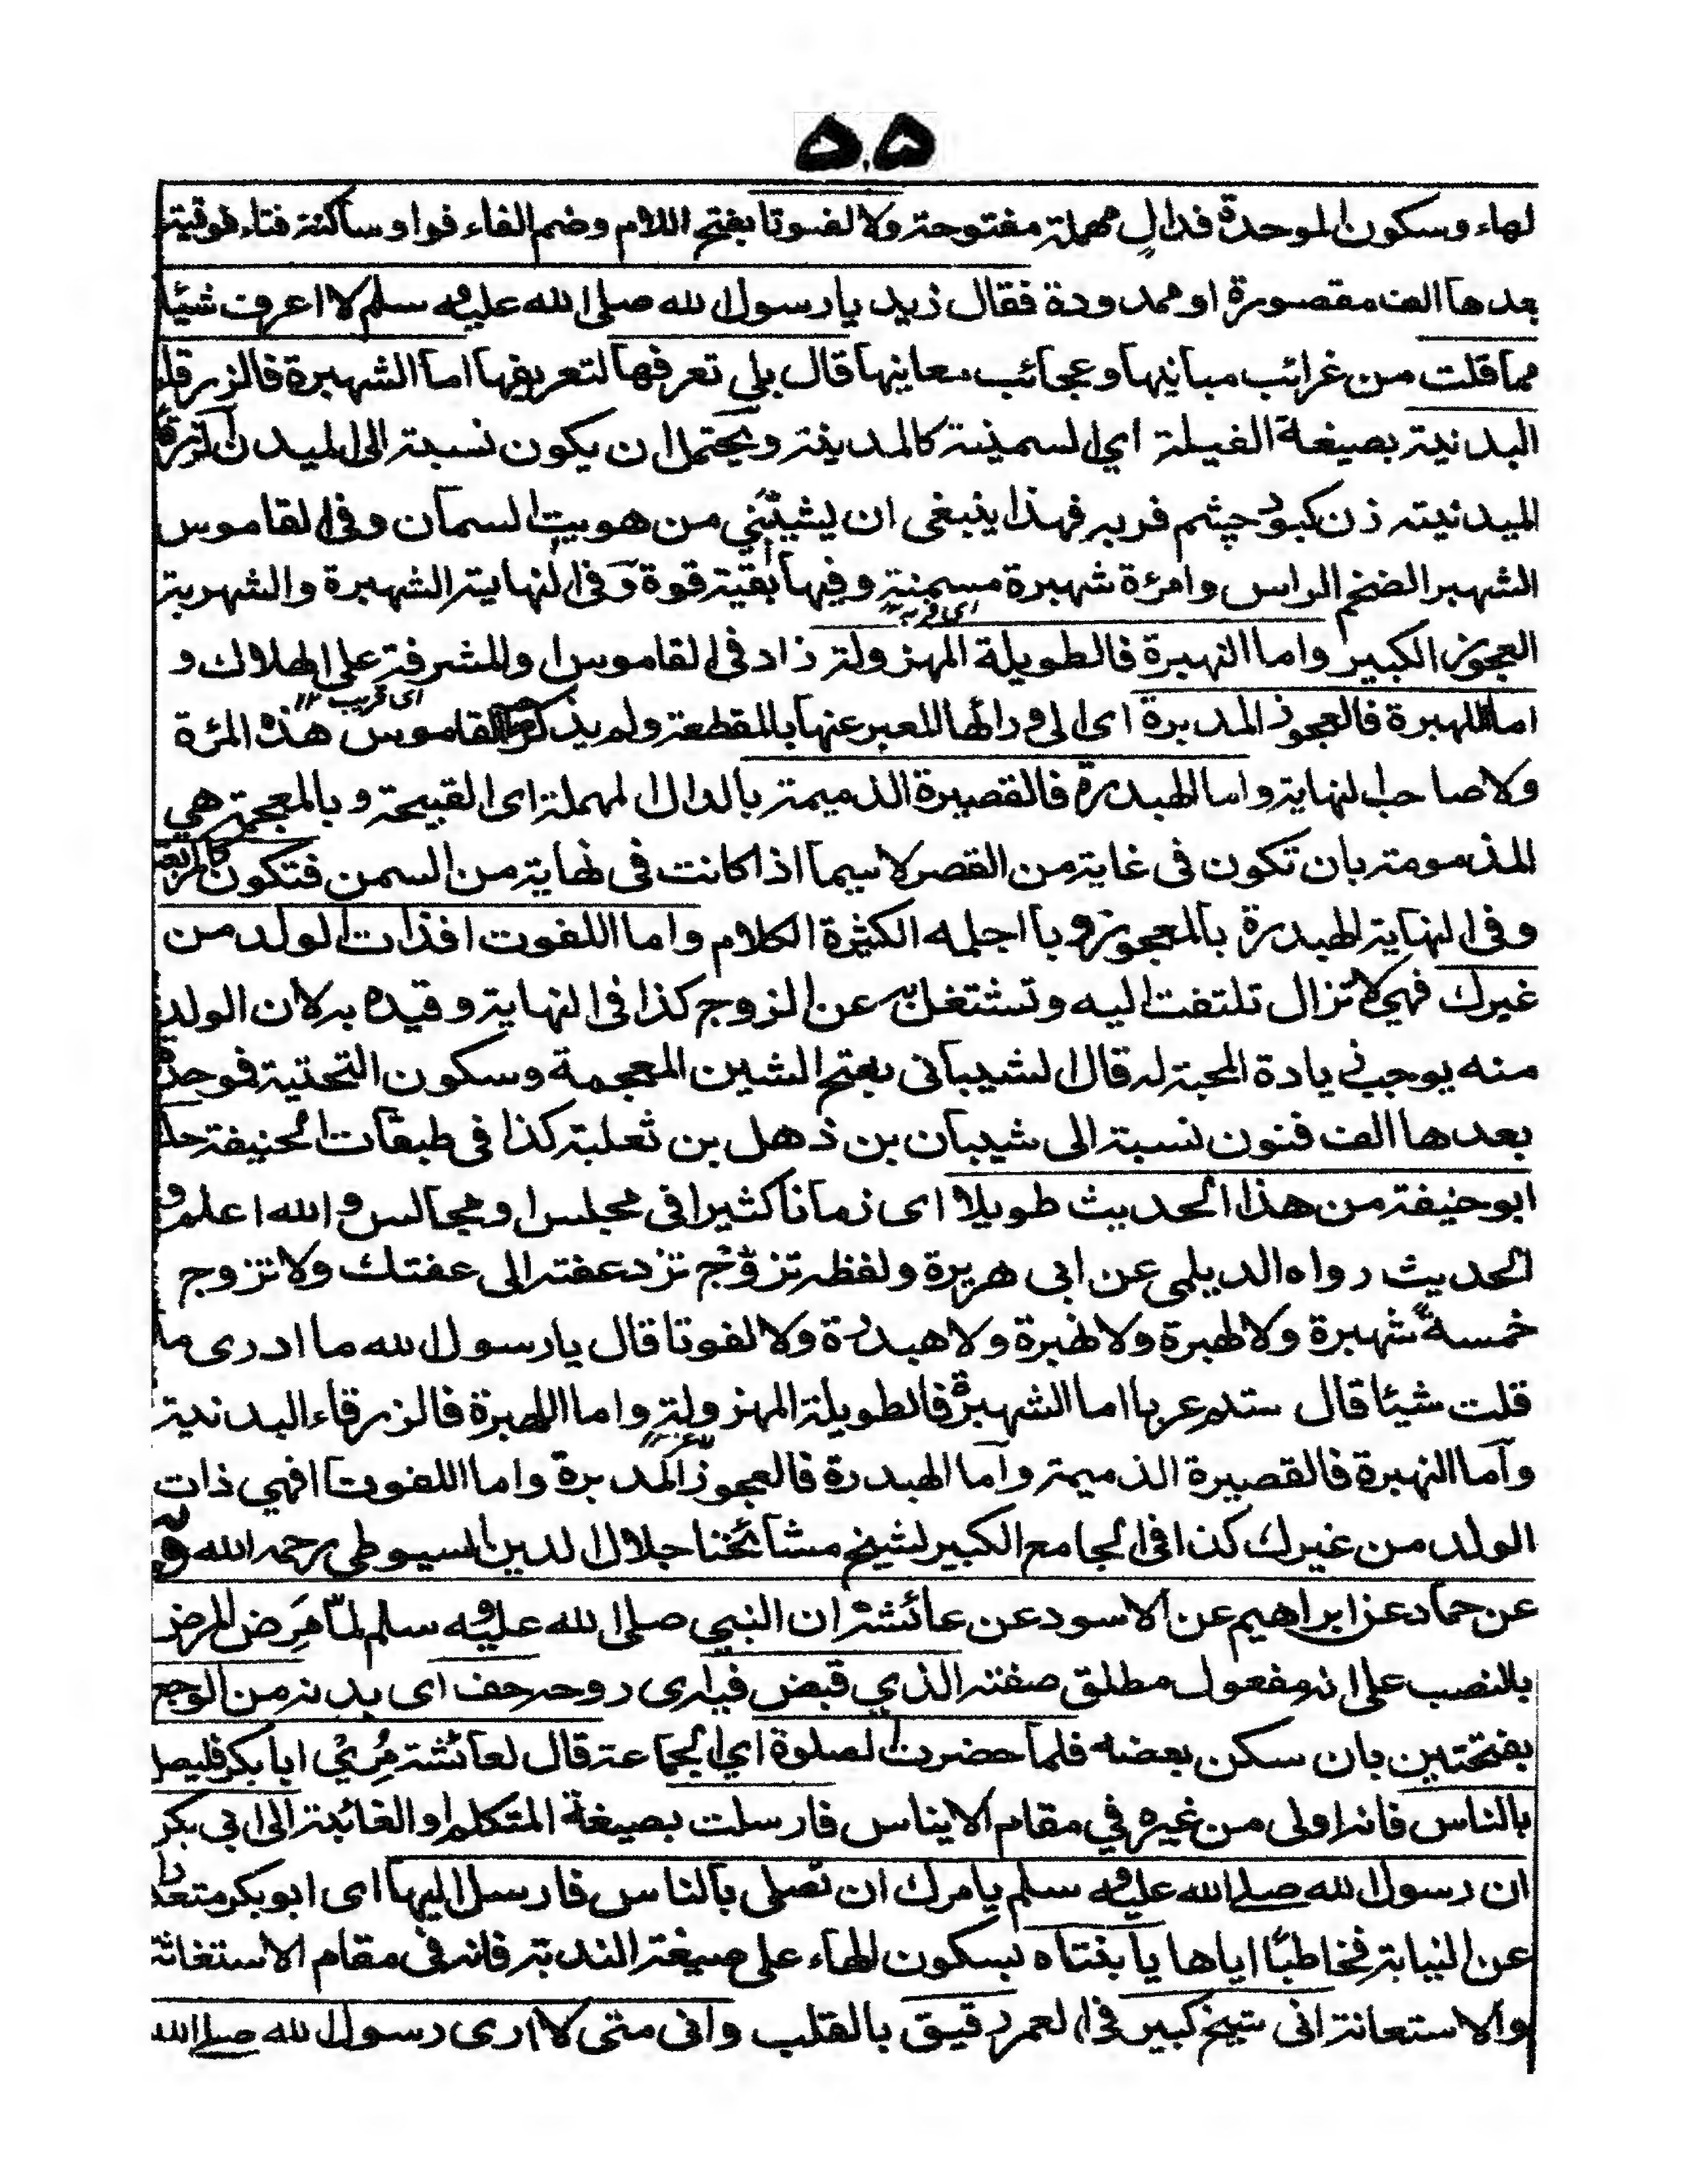 ۵۵
لهاء وسكون الموحدة فدال مهملة مفتوحة ولا لفوتا بفتح اللام وضم الفاء فواو ساكنة فتاء فوقية
بعدها الف مقصورة او ممدودة فقال زيد يا رسول الله صلى الله عليه وسلم لا اعرف شيئا
مما قلت من غرائب مبانيها وعجائب معانيها قال بلى تعرفها لتعريفها اما الشهبرة فالزرقاء
البدنية بصيغة الفيلة اي السمينة كالمدينة ويحتمل ان يكون نسبة الى الميدن
الميدنيته زن كبود چشم فربه فهذا ينبغى ان من السمان وفى القاموس
الشهبر الضخم الراس وامرأة شهبرة مسمنة وفيها بقية قوة وفى النهاية الشهبرة والشهربة
اى فربه ١٢
العجوز الكبير واما النهبرة فالطويلة المهزولة زاد فى القاموس والمشرفة على الهلاك و
اى قريب ١٢
اما اللهبرة فالعجوز المدبرة اى الى ورائها المعبر عنها بالمقطعة ولم يذكر القاموس هذه المرة
ولا صاحب النهاية واما الهبدرة فالقصيرة الدميمة بالدال المهملة اى القبيحة وبالمعجمة هي
المذمومة بان تكون فى غاية من القصر لا سيما اذا كانت فى نهاية من السمن فتكون كالمربعة
وفى النهاية الهبدرة بالمعجوزة وبا اجمله الكثيرة الكلام واما اللفوت افذات الولد من
غيرك فهي لا تزال تلتفت اليه وتشتغل به عن الزوج كذا فى النهاية وقيده به لان الولد
منه يوجب زيادة المحبة له قال الشيبانى بفتح الشين المعجمة وسكون التحتية فوحدة
بعدها الف فنون نسبة الى شيبان بن ذهل بن ثعلبة كذا فى طبقات الحنيفة
ابو حنيفة من هذا الحديث طويلا اى زمانا كثيرا فى مجلس او مجالس والله اعلم و
الحديث رواه الديلمى عن ابى هريرة ولفظه تزوج تزد عفته الى عفتك ولا تزوج
خمسة شهبرة ولا لهبرة ولا نهبرة ولا هبدرة ولا لفوتا قال يا رسول الله ما ادرى ما
قلت شيئا قال عربا اما الشهبرة فالطويلة المهزولة واما اللهبرة فالزرقاء البدنية
واما النهبرة فالقصيرة الذميمة واما الهبدرة فالعجوز المدبرة واما اللفوتا فهي ذات
الولد من غيرك كذا فى الجامع الكبير لشيخ مشائخنا جلال الدين السيوطى رحمه الله وبه
عن حماد عن ابراهيم عن الاسود عن عائشة ان النبي صلى الله عليه وسلم لما مرض المرض
بالنصب على انه مفعول مطلق صفته الذي قبض فيه اى روحه خف اى بدنه من الوجع
بفتحتين بان سكن بعضه فلما حضرت الصلوة اي الجماعة قال لعائشة مري ابا بكر فليصل
بالناس فانه اولى من غيره في مقام الايناس فارسلت بصيغة المتكلم او الغائبة الى ابي بكر
ان رسول الله صلى الله عليه وسلم يامرك ان تصلى بالناس فارسل اليها اى ابو بكر متعذرا
عن النيابة مخاطبا اياها يا بنتاه بسكون الهاء على صيغة الندبة فانه فى مقام الاستغاثة
والاستعانة انى شيخ كبير فى العمر رقيق بالقلب وانى متى لا ارى رسول الله صلى الله